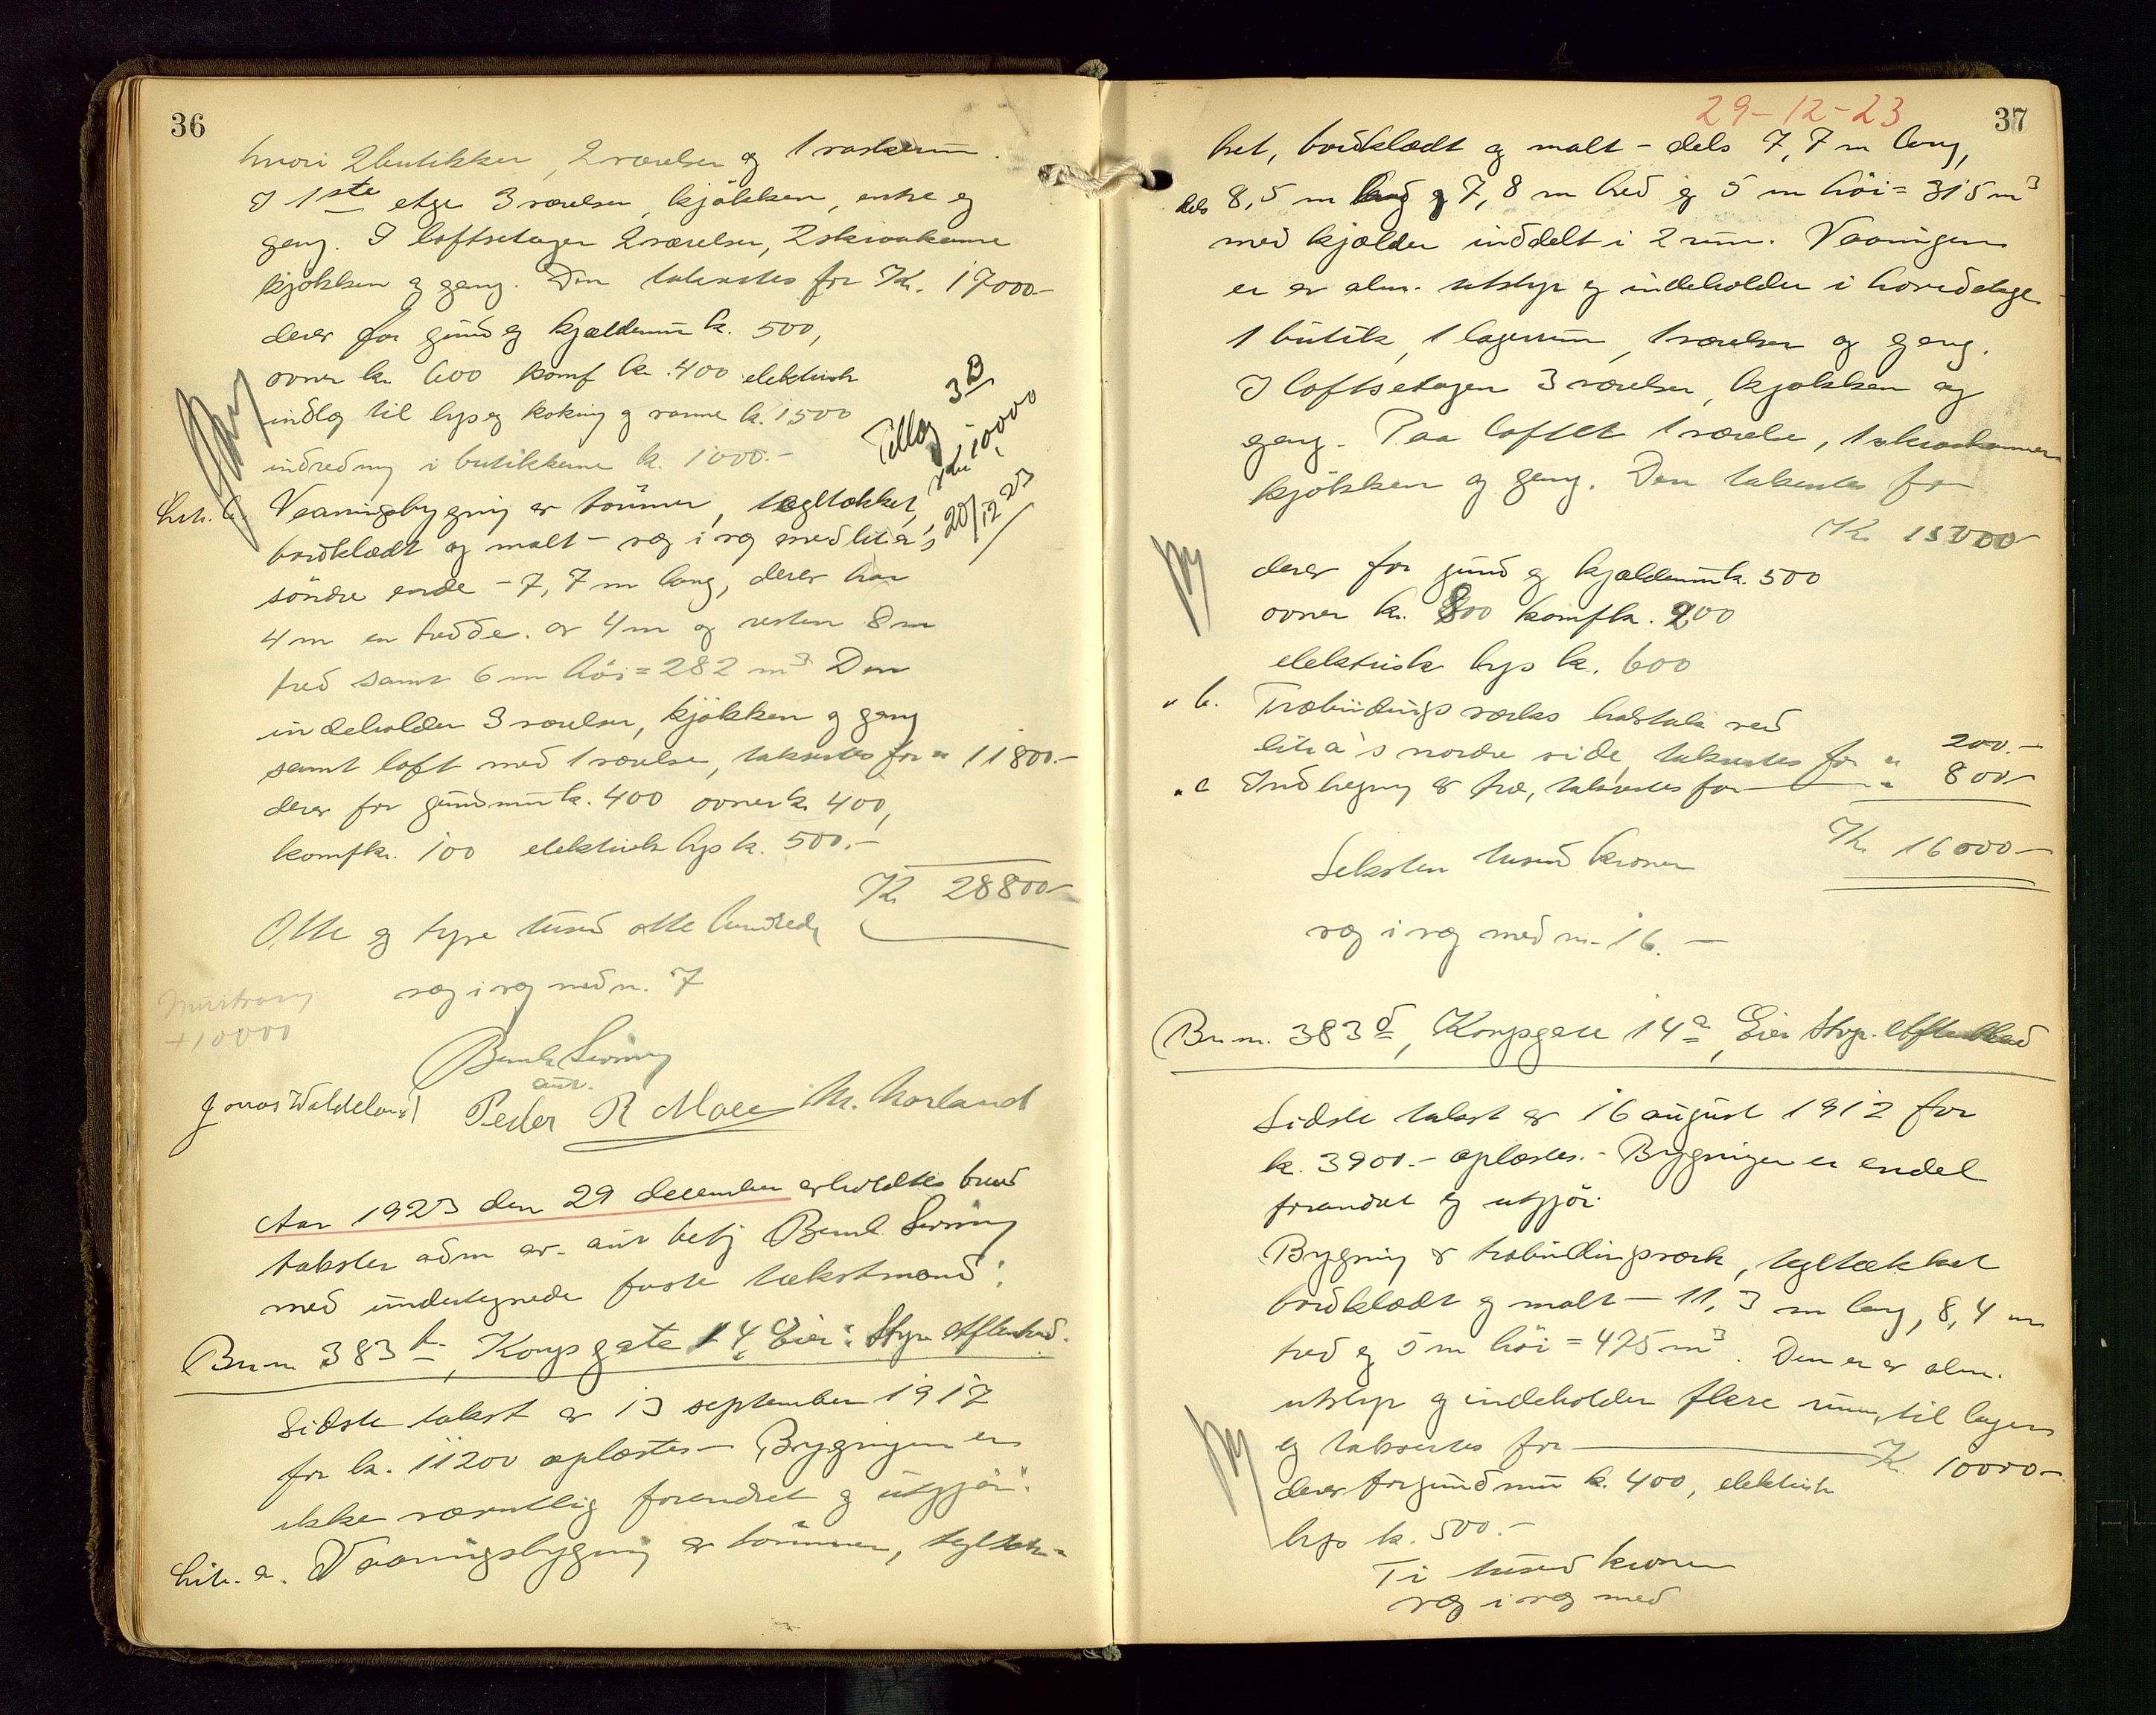 36
hvori 2 butikker, 2 værelser og 1 vaskerum.
I 1ste etge 3 værelser, kjøkken, entre og
gang. I loftsetagen 2 værelser, 2 skraakamre
kjøkken og gang. Den takseres for Kr. 17000-
derav for grund og kjældermur kr. 500,
ovner kr. 600 komf kr. 400 elektrisk
indlæg til lys og koking og varme kr. 1500
indredning i butikkerne kr. 1000.-
Tillæg 3 B
10000
20/12 23
Litr. b. Vaaningsbygning av tømmer, tegltækket,
bordklædt og malt - væg i væg med lit a's
søndre ende - 7,7 m lang, derav har
4 m en bredde av 4 m og resten 8 m
bred samt 6 m høi = 282 m3 Den
indeholder 3 værelser, kjøkken og gang
samt loft med 1 værelse, takseres for " 11800.-
derav for grundmur kr. 400 ovner kr 400,
komf kr. 100 elektrisk lys kr. 500.-
Kr 28800-
Otte og tyve tusend otte hundrede
væg i væg med nr. 7
Murtvang
+10000
Bernh Severing
aut.
Jonas Waldeland Peder R Moe M. Marland
Aar 1923 den 29 december avholdtes brand
takster adm av aut betj Bernh Severing
med undertegnede faste takstmænd:
Br nr 383 b, Kongsgate 14 c Eier: Stvgr Aftenblad.
Sidste takst av 13 september 1917
for kr. 11200 oplæstes - Bygningen er
ikke væsentlig forandret og utgjør:
Litr. a. Vaaningsbygning av tømmer, tegltæk-
29-12-23
37
ket, bordklædt og malt - dels 7,7 m lang,
dels 8,5 m lang og 7,8 m bred og 5 m høi = 315 m3
med kjælder inddelt i 2 rum. Vaaningen
er av alm. utstyr og indeholder i hovedetage
1 butik, 1 lagerrum, 1 værelse og gang.
I loftsetagen 3 værelser, kjøkken og
gang. Paa loftet 1 værelse, 1 skraakammer
kjøkken og gang. Den takseres for
Kr 15000-
derav for grund og kjældermur kr. 500
ovner kr. 800 komf kr. 200
elektrisk lys kr. 600
" b. Træbindingsverks halvtak ved
lit a's nordre side, takseres for " 200.-
" c Indhegning av træ, takseres for " 800-
Kr 16000-
Seksten tusend kroner
væg i væg med nr. 16. -
Br nr. 383 d, Kongsgate 14 a, Eier Stvgr. Aftenblad
Sidste takst av 16 august 1912 for
kr. 3900.- oplæstes. - Bygningen er endel
forandret og utgjør:
Bygning av træbindingsverk, tegltækket
bordklædt og malt - 11,3 m lang, 8,4 m
bred og 5 m høi = 475 m3. Den er av alm.
utstyr og indeholder flere rum, til lager
og takseres for Kr. 10000-
derav for grundmur kr. 400, elektrisk
lys kr. 500.-
Ti tusend kroner
væg i væg med